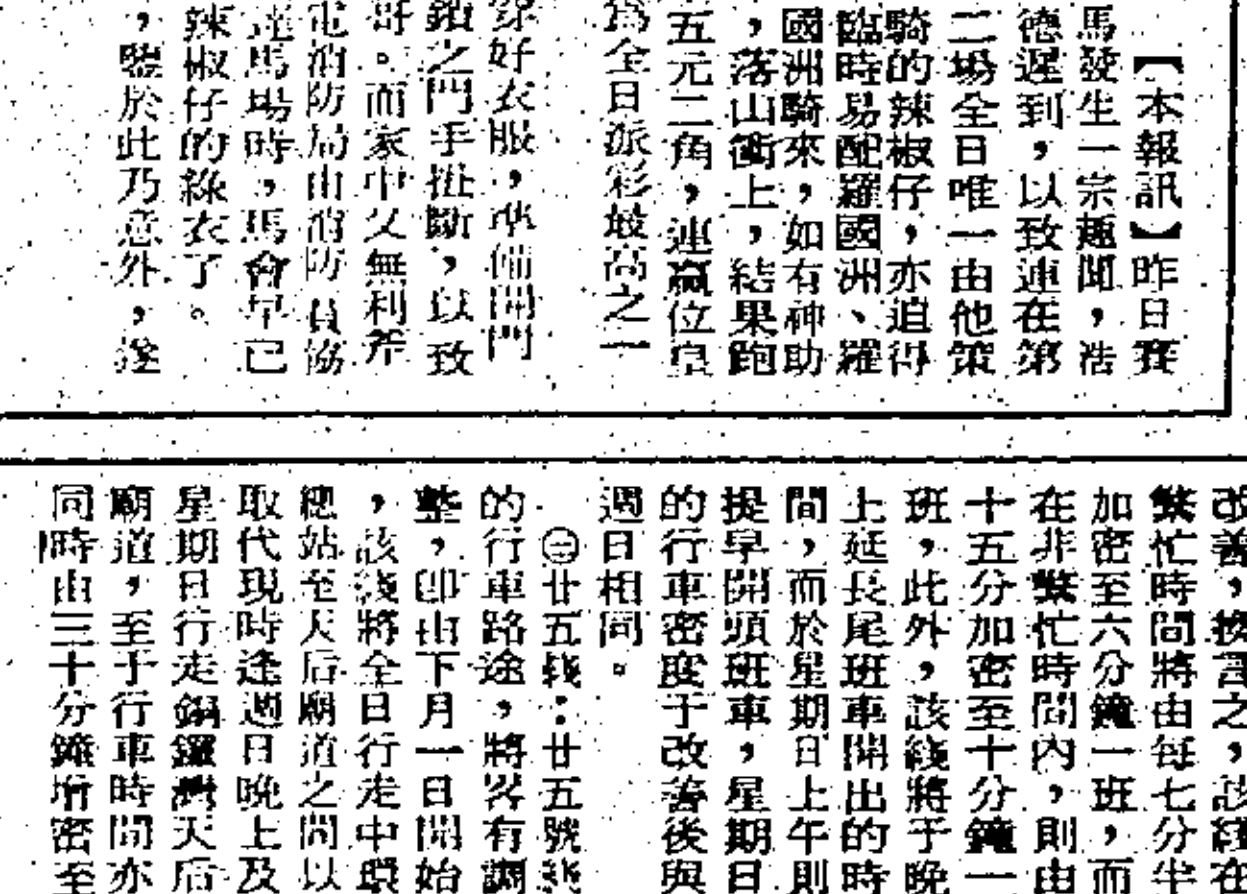 【本報訊】昨日賽
馬發生一宗趣聞,告
德遲到,以致連在第
二場全日唯一由他策
騎的辣椒仔,亦迫得
臨時易配羅國洲、羅
國洲騎來,如有神助
,落山衝上,結果跑
五元二角,連贏位息
為全日派彩最高之一
穿好衣服,準備開門
鎖之門手扭斷,以致
哥。而家中又無利斧
電消防局由消防員協
達馬場時,馬會早已
辣椒仔的綠衣了。
,鑒於此乃意外,遂
改善,換言之,該綫在
繁忙時間將由每七分半
加密至六分鐘一班,而
在非繁忙時間內,則由
十五分加密至十分鐘一
班,此外,該綫將于晚
上延長尾班車開出的時
間,而於星期日上午則
提早開頭班車,星期日
的行車密度于改善後與
週日相同。
㊂廿五綫:廿五號綫
的行車路途,將畧有調
整,即由下月一日開始
,該綫將全日行走中環
總站至天后廟道之間以
取代現時逢週日晚上及
星期日行走銅鑼灣天后
廟道,至于行車時間亦
同時由三十分鐘增密至